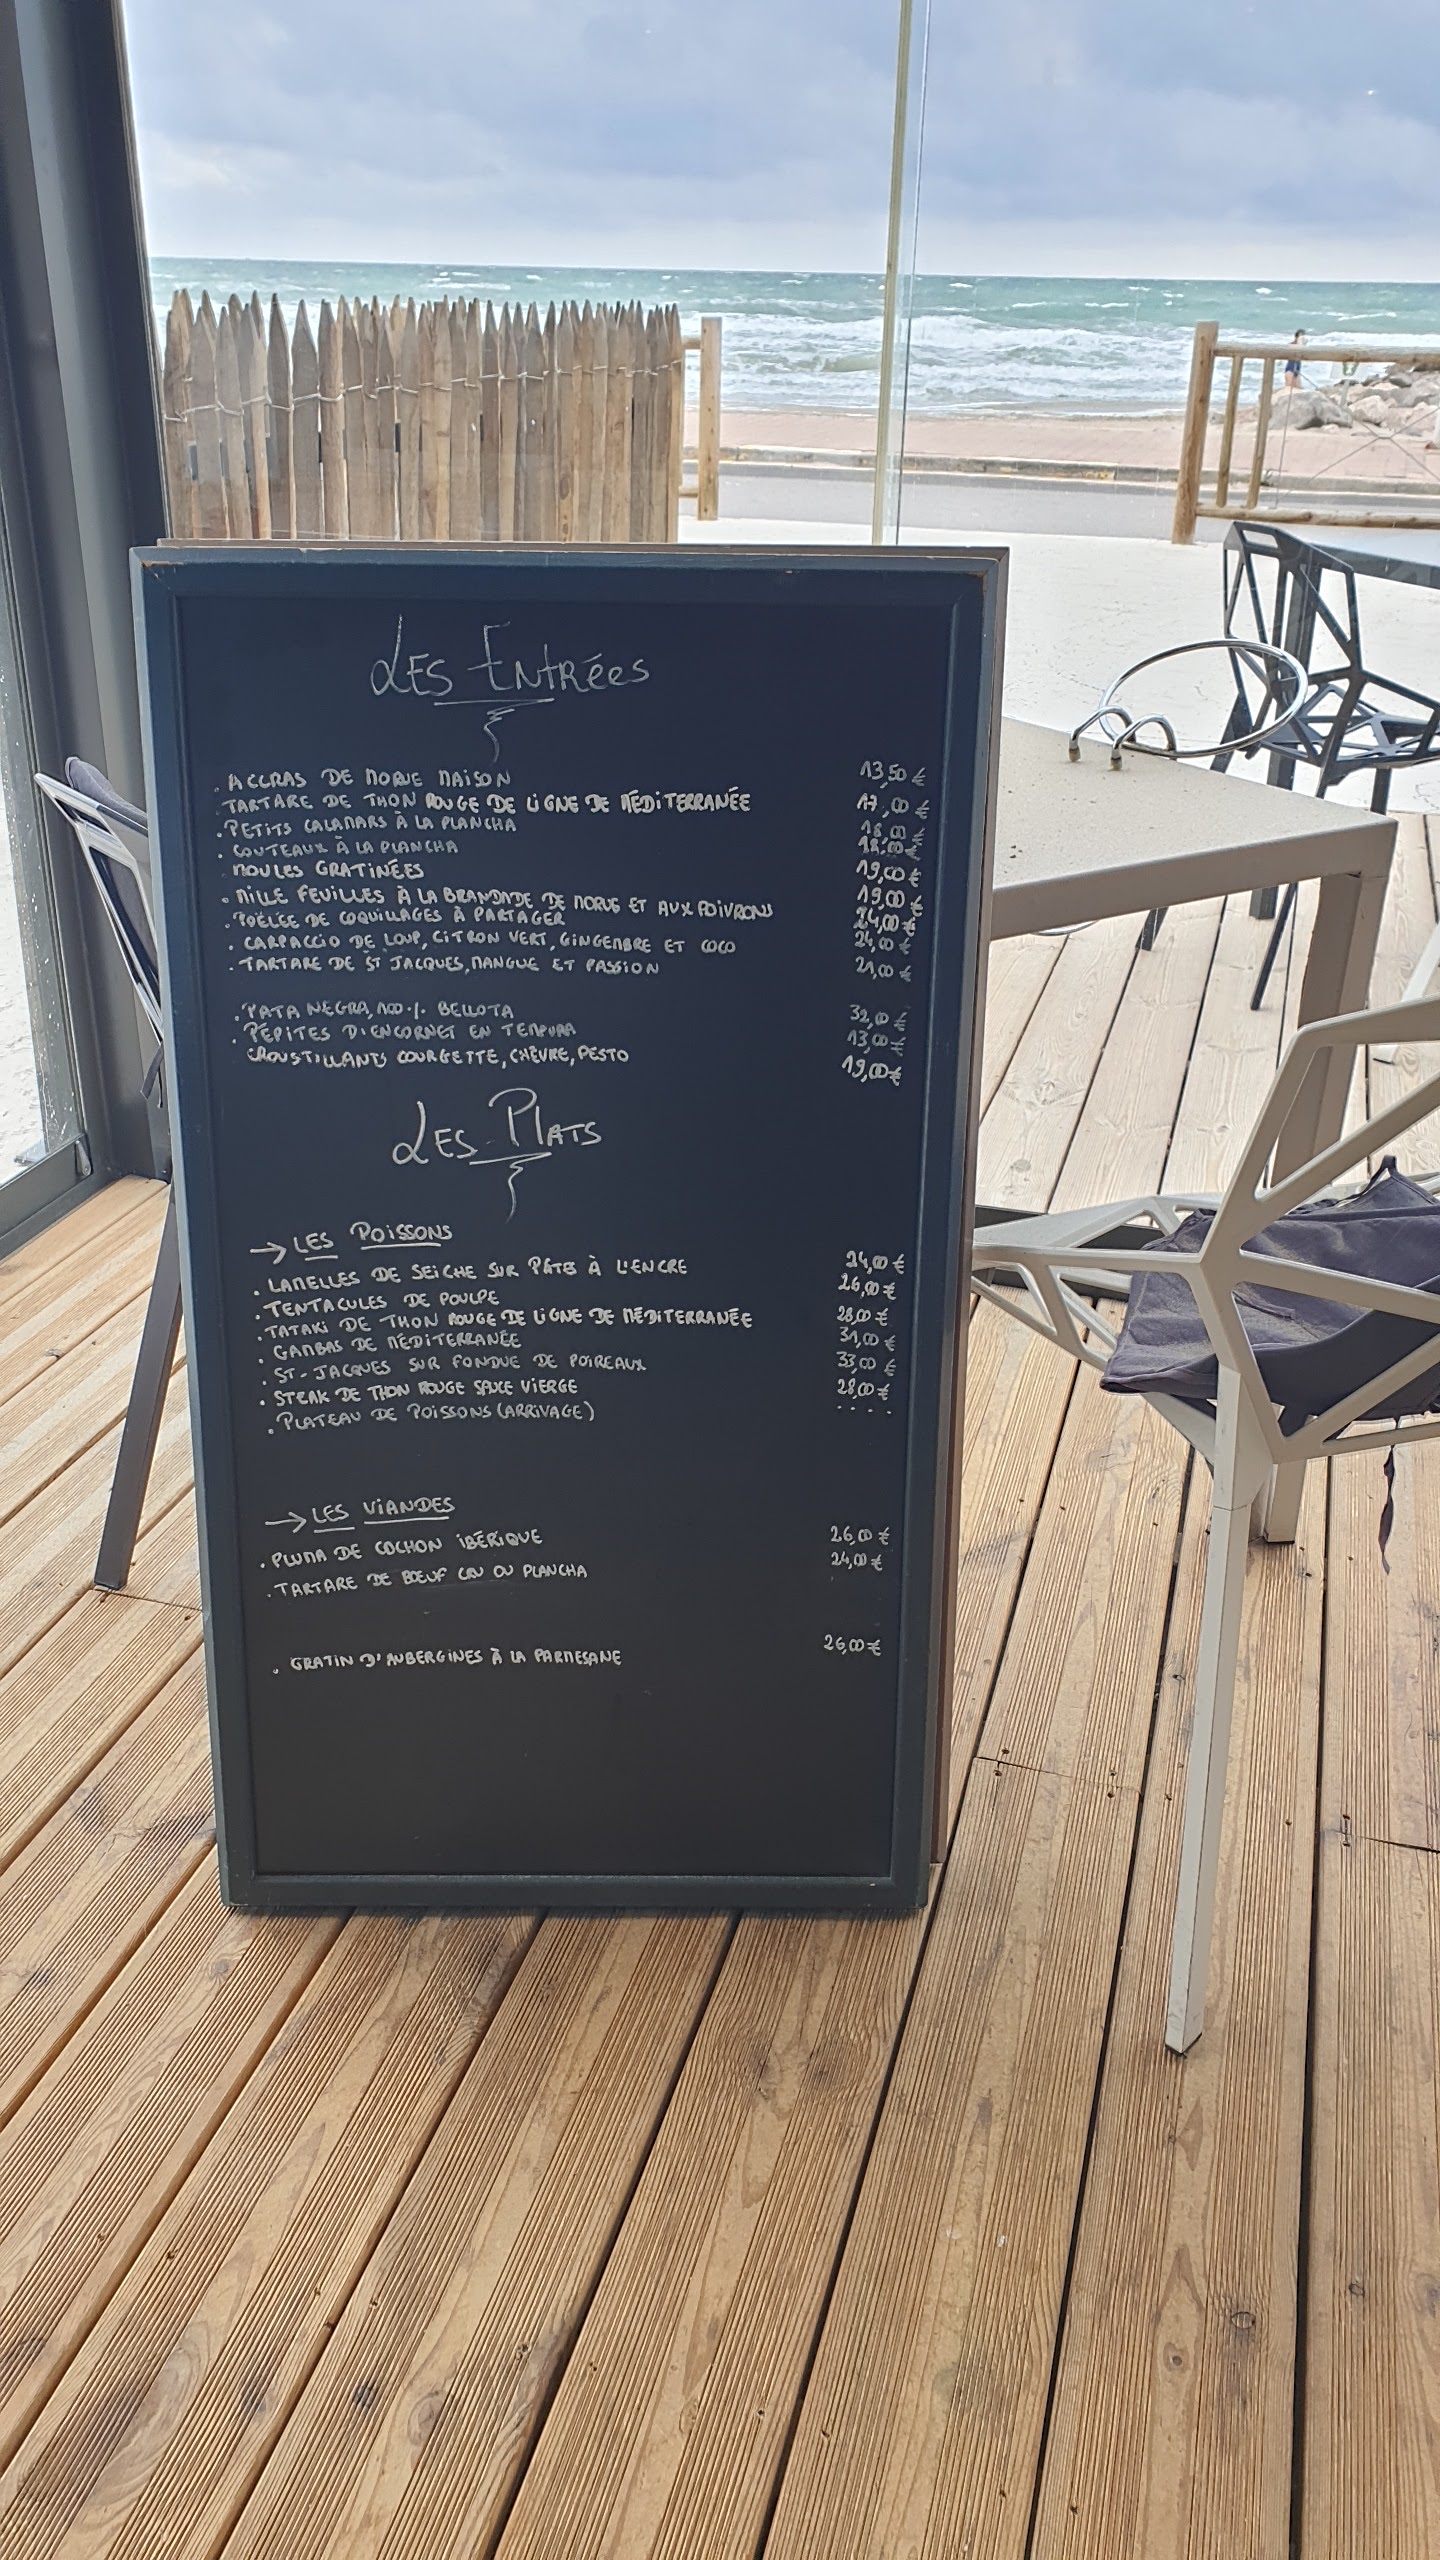 Les Entrées
. ACCRAS DE MORUE MAISON 13,50 €
. TARTARE DE THON ROUGE DE LIGNE DE MÉDITERRANÉE 17,00 €
. PETITS CALAMARS À LA PLANCHA 18,00 €
. COUTEAUX À LA PLANCHA 18,00 €
MOULES GRATINÉES 19,00 €
. MILLE FEUILLES À LA BRANDADE DE MORUE ET AUX POIVRONS 19,00 €
. POÊLÉE DE COQUILLAGES À PARTAGER 24,00 €
. CARPACCIO DE LOUP, CITRON VERT, GINGEMBRE ET COCO 24,00 €
. TARTARE DE ST JACQUES, MANGUE ET PASSION 21,00 €
. PATA NEGRA, 100% BELLOTA 32,00 €
. PÉPITES D'ENCORNET EN TEMPURA 13,00 €
CROUSTILLANTS COURGETTE, CHÈVRE, PESTO 19,00 €
Les Plats
→ LES POISSONS
. LAMELLES DE SEICHE SUR PÂTES À L'ENCRE 24,00 €
. TENTACULES DE POULPE 26,00 €
. TATAKI DE THON ROUGE DE LIGNE DE MÉDITERRANÉE 28,00 €
. GAMBAS DE MÉDITERRANÉE 31,00 €
. ST-JACQUES SUR FONDUE DE POIREAUX 33,00 €
. STEAK DE THON ROUGE SAUCE VIERGE 28,00 €
. PLATEAU DE POISSONS (ARRIVAGE) ....
→ LES VIANDES
. PLUMA DE COCHON IBÉRIQUE 26,00 €
. TARTARE DE BOEUF CRU OU PLANCHA 24,00 €
. GRATIN D'AUBERGINES À LA PARMESANE 26,00 €